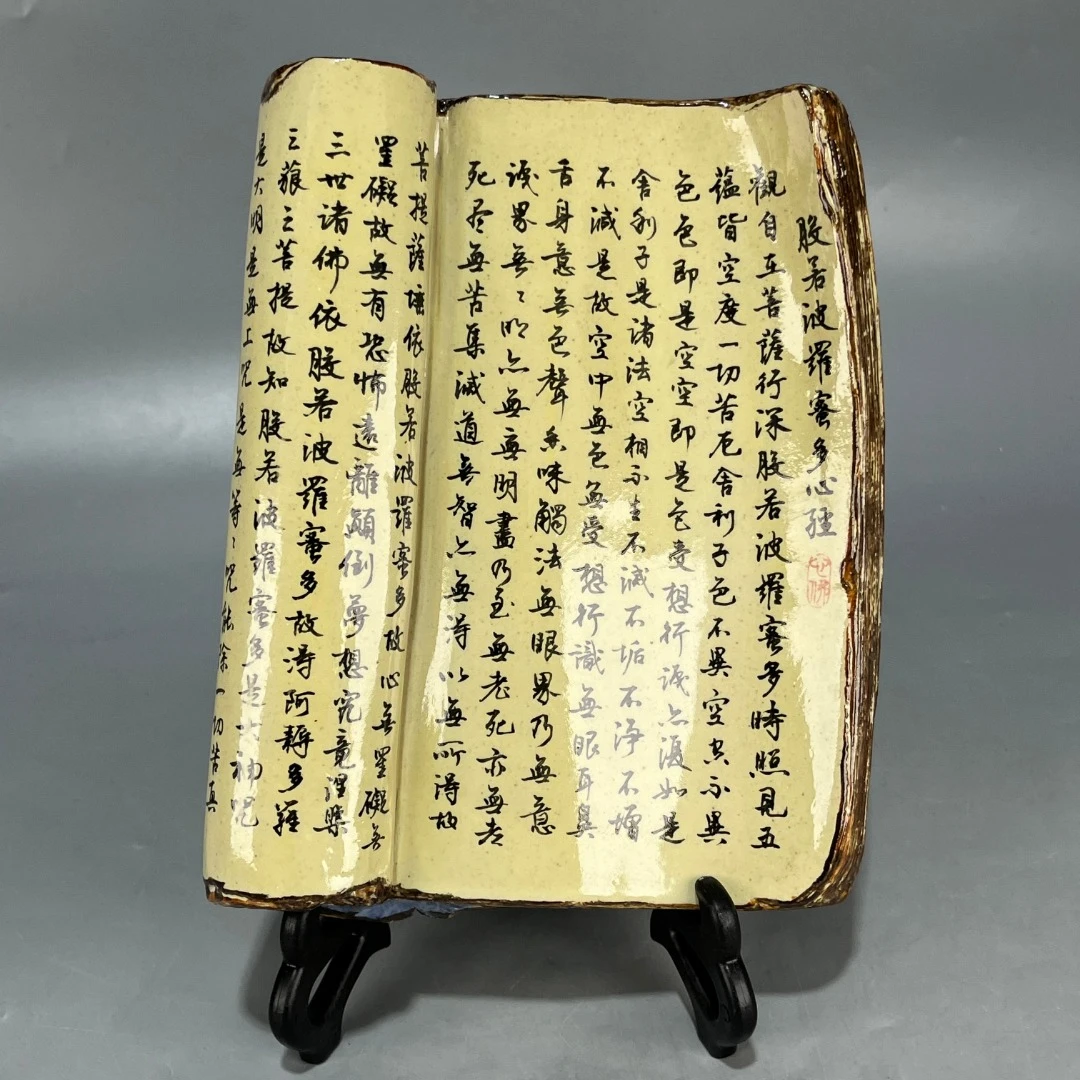 般若波羅蜜多心經
心佛
觀自在菩薩行深般若波羅蜜多時照見五
蘊皆空度一切苦厄舍利子色不異空空不異
色色即是空空即是色受想行識亦復如是
舍利子是諸法空相不生不滅不垢不淨不增
不減是故空中無色無受想行識無眼耳鼻
舌身意無色聲香味觸法無眼界乃無意
識界無〻明亦無無明盡乃至無老死亦無老
死尽無苦集滅道無智亦無得以無所得故
菩提薩埵依般若波羅蜜多故心無罣礙無
罣礙故無有恐怖遠離顛倒夢想究竟涅槃
三世諸佛依般若波羅蜜多故得阿耨多羅
三藐三菩提故知般若波羅蜜多是大神咒
是大明是無上咒是無等〻咒能除一切苦真